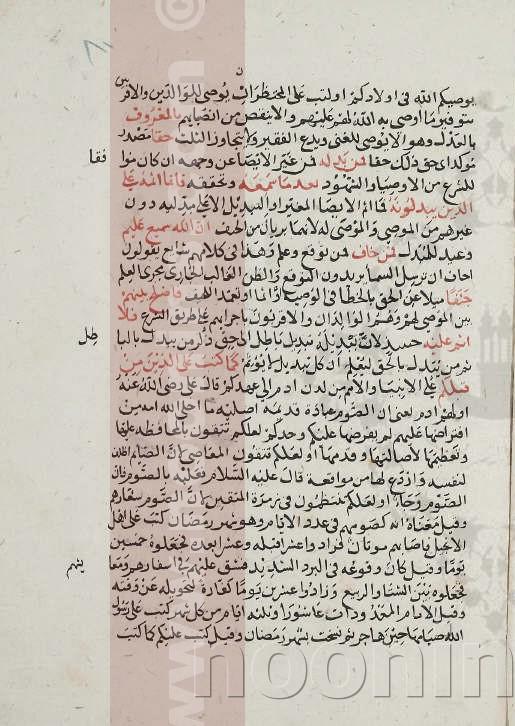 يوصيكم الله في اولادكم او كتب على المحتضر ان يوصي للوالدين والاقربين
بتوفير ما اوصى به الله لهم عليهم ولا ينقص من انصبائهم بالمعروف
بالعدل وهو ان لا يوصي للغني ويدع الفقير ولا يتجاوز الثلث حقا مصدر
مولد اي حق ذلك حقا فمن بدله فمن غير الايصاء عن وجهه ان كان موافقا
للشرع من الاوصياء والشهود بعد ما سمعه وتحققه فانما اثمه على
الذين يبدلونه فما اثم الايصاء المغير او التبديل الا على مبدليه دون
غيرهم من الموصي والموصى له لانهما بريان من الحيف ان الله سميع عليم
وعيد للمبدل فمن خاف فمن توقع وعلم وهذا في كلامهم شائع يقولون
اخاف ان ترسل السما يريدون التوقع والظن الغالب الجاري مجرى العلم
جنفا ميلا عن الحق بالخطا في الوصية او اثما او تعمد للحيف فاصلح بينهم
بين الموصى لهم وهم الوالدان والاقربون باجرائهم على طريق الشرع فلا
اثم عليه حينئذ لان تبديله تبديل باطل الى حق ذكر من يبدل بالباطل
ثم من يبدل بالحق ليعلم ان كل تبديل لا يؤثم كما كتب على الذين من
قبلكم على الانبيا والامم من لدن ادم الى عهدكم قال علي رضي الله عنه
اولهم ادم يعني ان الصوم عبادة قديمة اصلية ما اخلى الله امة من
افتراضها عليهم لم يفرضها عليكم وحدكم لعلكم تتقون بالمحافظة عليها
وتعظيمها لاصالتها وقدمها او لعلكم تتقون المعاصي لان الصايم اظلف
لنفسه واردع لها من مواقعة قال عليه السلام فعليه بالصوم فان
الصوم له وجاء او لعلكم تنتظمون في زمرة المتقين لان الصوم شعارهم
وقيل معناه انه كصومهم في عدد الايام وهو شهر رمضان كتب على اهل
الانجيل فاصابهم موتان فزادوا عشرا قبله وعشرا بعده فجعلوه خمسين
يوما وقيل كان وقوعه في البرد الشديد فشق عليهم في اسفارهم ومعايشهم
فجعلوه بين الشتا والربيع وزادوا عشرين يوما كفارة لتحويله عن وقته
وقيل الايام المعدودات عاشورا وثلثة ايام من كل شهر كتب على رسول
الله صيامها حين هاجر ثم نسخت بشهر رمضان وقيل كتب عليكم كما كتب
noonin